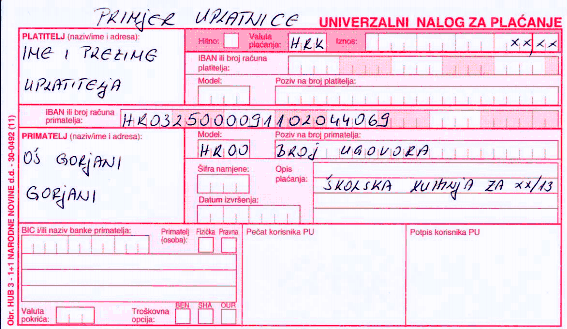 PRIMJER UPLATNICE
UNIVERZALNI NALOG ZA PLAĆANJE
PLATITELJ (naziv/ime i adresa):
IME I PREZIME
UPLATITELJA
Hitno:
Valuta plaćanja:
HRK
Iznos:
xx,xx
IBAN ili broj računa platitelja:
Model:
Poziv na broj platitelja:
IBAN ili broj računa primatelja:
HR0325000091102044069
PRIMATELJ (naziv/ime i adresa):
OŠ GORJANI
GORJANI
Model:
HR00
Poziv na broj primatelja:
BROJ UGOVORA
Šifra namjene:
Opis plaćanja:
ŠKOLSKA KUHINJA ZA xx/13
Datum izvršenja:
BIC i/ili naziv banke primatelja:
Primatelj (osoba):
Fizička
Pravna
Valuta pokrića:
Troškovna opcija:
BEN
SHA
OUR
Pečat korisnika PU
Potpis korisnika PU
Obr. HUB 3 - 1+1 NARODNE NOVINE d.d. - 30-0492 (11)